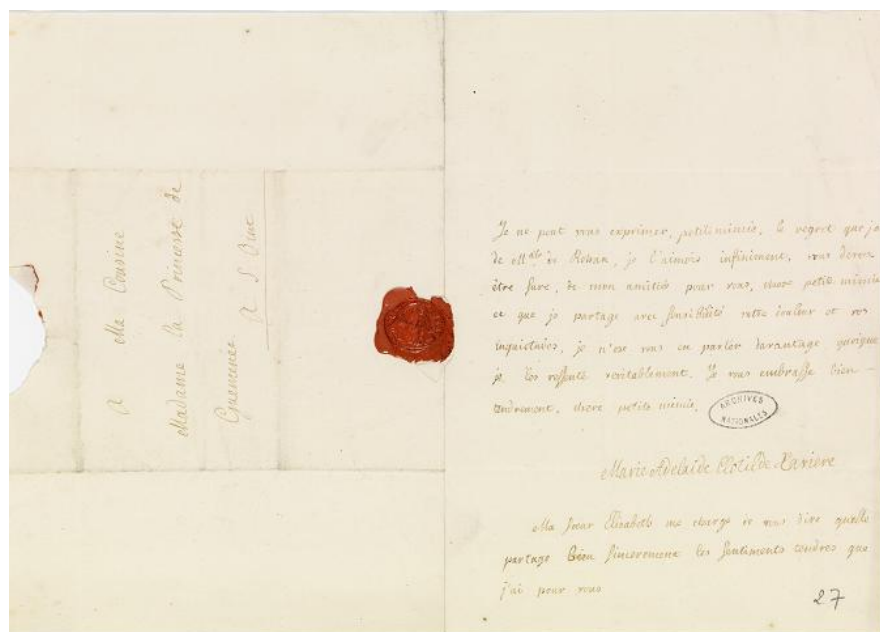 A Ma Cousine
Madame la Princesse de
Gueménée
A S.
Je ne peut vous exprimer, petite mimie, le regret que j'ai
de Mde de Rohan, je l'aimois infiniment, vous devez
être sure, de mon amitiée pour vous, chere petite mimie
ce que je partage avec sensibilité votre douleur et vos
inquietudes, je n'ose vous en parler davantage quoique
je les ressente veritablement. Je vous embrasse bien
tendrement, chere petite mimie.
ARCHIVES
NATIONALES
Marie Adelaide Clotilde Xaviere
Ma soeur Elisabeth me charge de vous dire quelle
partage bien sincerement les sentiments tendres que
j'ai pour vous
27